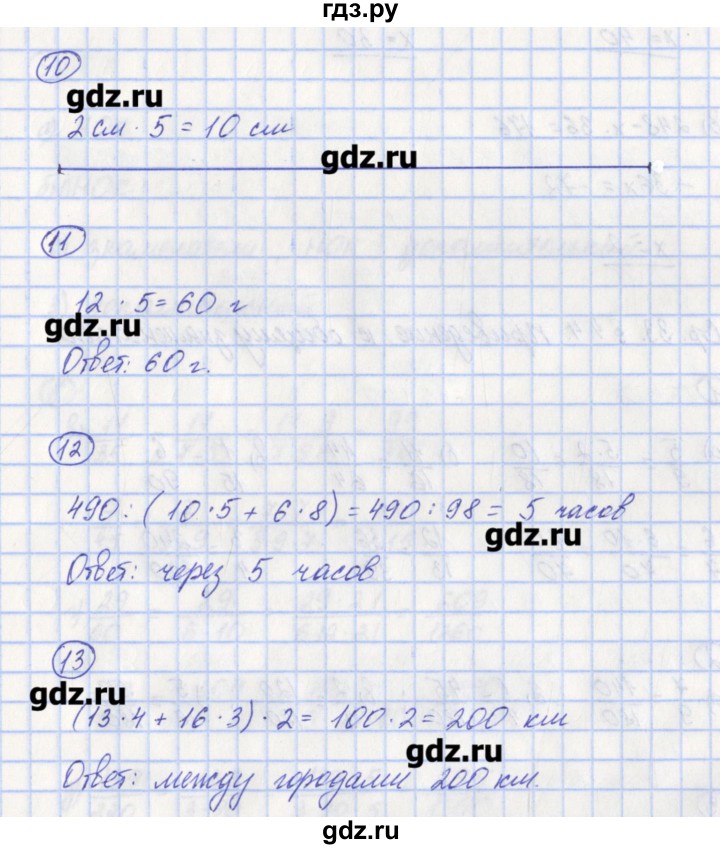 гдз.ру
10
gdz.ru
2 см · 5 = 10 см
gdz.ru
11
12 · 5 = 60 г
gdz.ru
Ответ: 60 г.
12
490 : (10 · 5 + 6 · 8) = 490 : 98 = 5 часов
gdz.ru
Ответ: через 5 часов
13
gdz.ru
(13 · 4 + 16 · 3) · 2 = 100 · 2 = 200 км
gdz.ru
Ответ: между городами 200 км.
gdz.ru